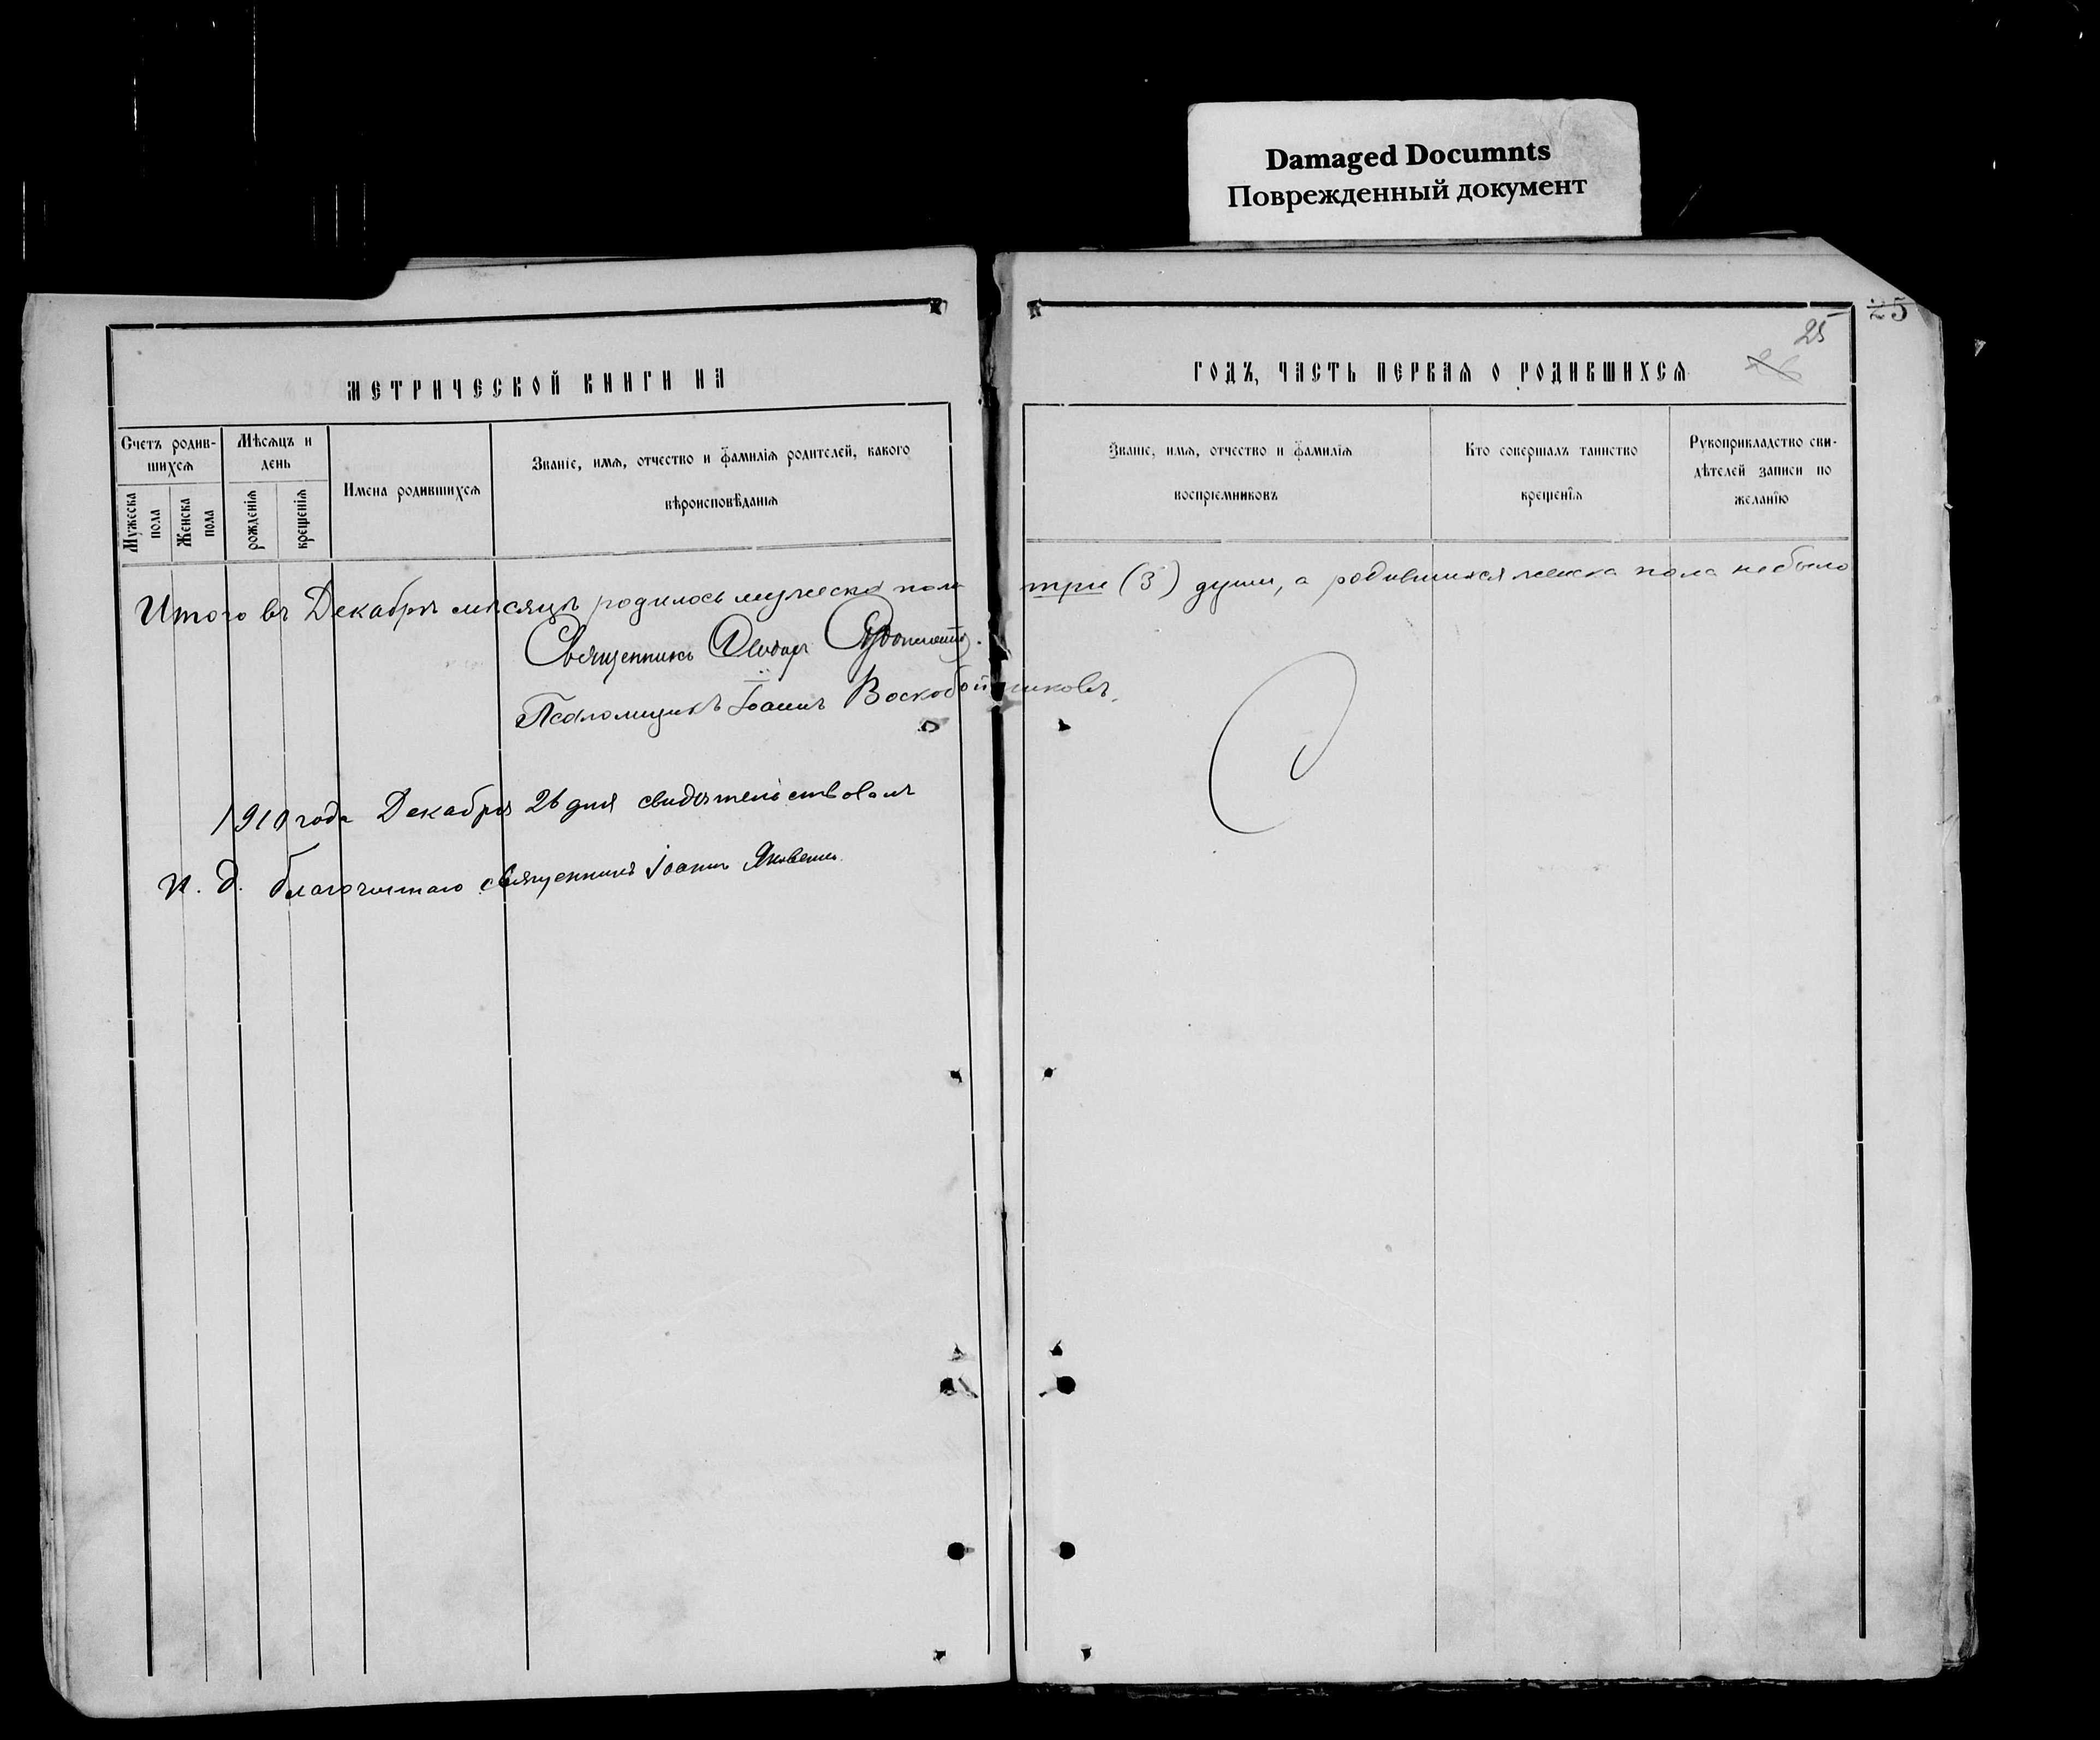 Damaged Documnts
Поврежденный документ
25
25
МЕТРИЧЕСКОЙ КНИГИ НА
ГОДЪ, ЧАСТЬ ПЕРВАЯ О РОДИВШИХСЯ
26
Счетъ родив-
шихся
Мужеска пола
Женска пола
Мѣсяцъ и
день
рожденія
крещенія
Имена родившихся
Званіе, имя, отчество и фамилія родителей, какого
вѣроисповѣданія
Званіе, имя, отчество и фамилія
воспріемниковъ
Кто совершалъ таинство
крещенія
Рукоприкладство сви-
дѣтелей записи по
желанію
Итого въ Декабрѣ мѣсяцѣ родилось мужеска пола три (3) души, а родившихся женска пола не было
Священникъ Ѳеодоръ
Псаломщикъ Іоаннъ Воскобойниковъ.
1910 года Декабря 26 дня свидѣтельствовалъ
и. д. благочиннаго священникъ Іоаннъ